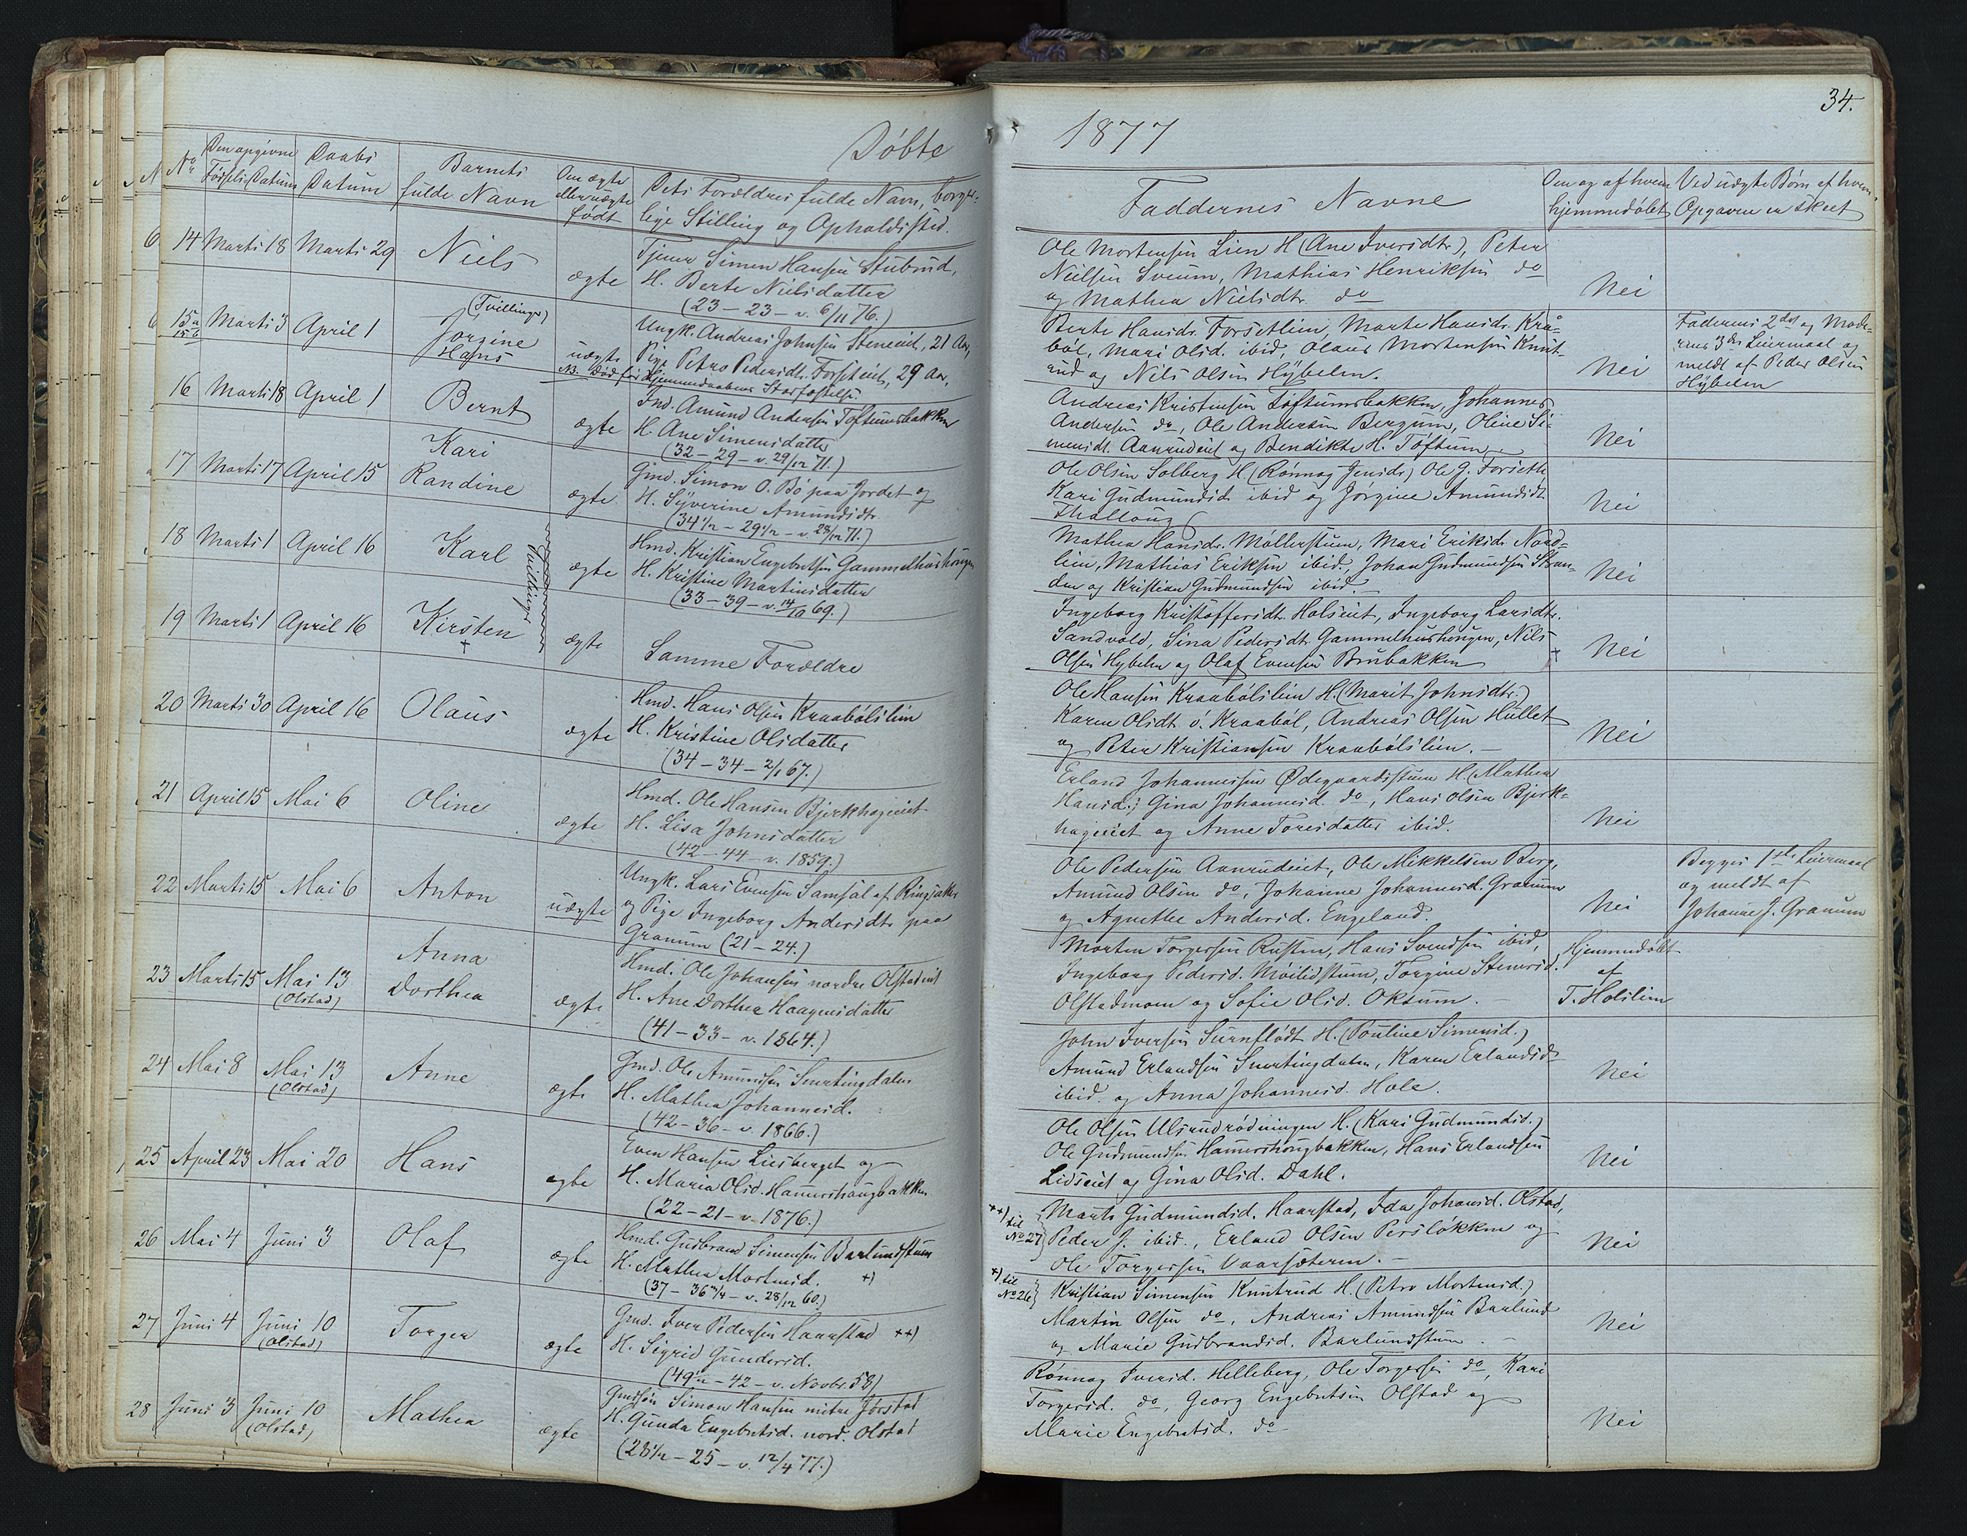 34.
Døbte
1877
No
Den opgivne
Fødsels-Datum
Daabs
Datum
Barnets
fulde Navn
Om ægte
eller uægte
født
Dets Forældres fulde Navn, borger-
lige Stilling og Opholdssted.
Faddernes Navne
Om og af hvem
hjemmedøbt
Ved uægte Børn af hvem
Opgaven er skeet
14 Marts 18 Marts 29 Niels ægte
Tjener Simen Hansen Stubrud,
H. Berte Nielsdatter
(23 – 23 – v. 6/11 76.)
Ole Mortensen Lien H (Ane Iversdtr), Peter
Nielsen Sveum, Mathias Henriksen do
og Mathea Nielsdtr. do
Nei
15a
15b
Marts 3 April 1
(Tvillinger)
Jørgine
Hans
uægte
Ungk. Andreas Johnsen Steneiet, 21 Aar,
Pige Petra Pedersdtr. Forseteiet, 29 Aar,
NB. Død før Hjemmedaabens Stadfæstelse
Berte Hansdr. Forsetlien, Marte Hansdr. Kraa-
bøl, Mari Olsd. ibid, Olaus Mortensen Knut-
rud og Nils Olsen Hybelen.
Nei
Faderens 2det og Mode-
rens 3die Leiermaal og
meldt af Peder Olsen
Hybelen
16 Marts 18 April 1 Bernt ægte
Ind. Amund Andersen Toftumsbakken
H. Ane Simensdatter
(32 – 29 – v. 29/12 71.)
Andreas Kristensen Toftumsbakken, Johannes
Andersen do, Ole Andersen Bergum, Oline Si-
mensdt. Aanrudeiet og Bendikte H. Toftum.
Nei
17 Marts 17 April 15
Kari
Randine
ægte
Gmd. Simon O. Bø paa Jordet og
H. Syverine Amundsdtr
(34 1/2 – 29 1/2 – v. 28/12 71.)
Ole Olsen Solberg H. (Rønnog Jensdr.) Ole J. Forseth
Kari Gudmundsdr ibid og Jørgine Amundsdt
Thallaug
Nei
18 Marts 1 April 16 Karl ægte
Tvillinger
Hmd. Kristian Engebretsen Gammelhushougen
H. Kristine Martinsdatter
(33 – 39 – v. 14/10 69.)
Mathea Hansdr. Møllerstuen, Mari Eriksdr Nord-
lien, Mathias Eriksen ibid., Johan Gudmundsen Stran-
den og Kristian Gudmundsen ibid. –
Nei
19 Marts 1 April 16 Kirsten ægte
+
Samme Forældre
Ingeborg Kristoffersdt. Holseiet, Ingeborg Larsdtr.
Sandvold, Sina Pedersdtr Gammelhushougen, Nils
Olsen Hybelen og Olaf Evensen Brubakken
+ Nei
20 Marts 30 April 16 Olaus ægte
Hmd. Hans Olsen Kraabølslien
H. Kristine Olsdatter
(34 – 34 – 2/1 67.)
Ole Hansen Kraabølslien H (Marit Johnsdtr.)
Karen Olsdt. ö. Kraabøl, Andreas Olsen Hullet
og Peter Kristiansen Kraabølslien. –
Nei
21 April 15 Mai 6 Oline ægte
Hmd. Ole Hansen Bjerkhageeiet
H. Lisa Johnsdatter
(42 – 44 – v. 1859.)
Erland Johannessen Ødegaardsstuen H (Mathea
Hansd.) Gina Johannesd. do, Hans Olsen Bjerk-
hageeiet og Anne Toresdatter ibid.
Nei
22 Marts 15 Mai 6 Anton uægte
Ungk. Lars Evensen Samsal af Ringsaker
og Pige Ingeborg Andersdtr. paa
Granum (21 – 24.)
Ole Pedersen Aanrudeiet, Ole Mikkelsen Berg,
Amund Olsen do, Johanne Johannesd. Granum
og Agnethe Andersd. Engeland.
Nei
Begges 1ste Leiermaal
og meldt af
Johanne J. Granum
23 Marts 15 Mai 13
(Olstad)
Anna
Dorthea
ægte
Hmd. Ole Johansen nordre Olstadeiet
H. Ane Dorthea Haagensdatter
(41 – 33 – v. 1864.)
Morten Torgersen Rusten, Hans Svendsen ibid,
Ingeborg Pedersd. Moilidstuen, Torgine Stenersd.
Olstadmoen og Sofie Olsd. Oksum. –
Hjemmedøbt
af
T. Holslien
24 Mai 8 Mai 13
(Olstad)
Anne ægte
Gmd. Ole Amundsen Snertingdalen
H. Mathea Johannesd.
(42 – 36 – v. 1866.)
John Iversen Surnflødt H. (Pouline Simensd.)
Amund Erlandsen Snertingdalen, Karen Erlandsd.
ibid. og Anna Johannesd. Hole.
Nei
25 April 23 Mai 20 Hans ægte
Even Hansen Liesberget og
H. Maria Olsd. Hamershaugbakken
(22 – 21 – v. 1876.)
Ole Olsen Ulsrudrødningen H. (Kari Gudmundsd.)
Ole Gudmundsen Hamershougbakken, Hans Erlandsen
Lidseiet og Gina Olsd. Dahl.
Nei
26 Mai 4 Juni 3 Olaf ægte
Hmd. Gudbrand Simensen Barlundstuen
H. Mathea Mortensd. +)
(37 – 36 3/4 – v. 28/12 60.)
++) til
No 27)
Marte Gudmundsd. Haarstad, Ida Johansd. Olstad,
Peder J. ibid., Erland Olsen Persløkken og
Ole Torgersen Vaarsæteren. –
Nei
27 Juni 4 Juni 10
(Olstad)
Torger ægte
Gmd. Iver Pedersen Haarstad ++)
H. Sigrid Gundersd.
(49 1/2 – 42 – v. Novbr. 58)
+) til
No 26
Kristian Simensen Knutrud H. (Petra Mortensd.)
Martin Olsen do, Andreas Amundsen Barlund
og Marie Gudbrandsd. Barlundstuen. –
Nei
28 Juni 3 Juni 10
(Olstad)
Mathea ægte
Gmdsøn Simon Hansen mitre Jørstad
H. Gunda Engebretsd. nord. Olstad
(28 1/2 – 25 – v. 12/4 77.)
Rønnog Iversd. Helleberg, Ole Torgersen do, Kari
Torgersd. do, Georg Engebretsen Olstad og
Marie Engebretsd. do
Nei